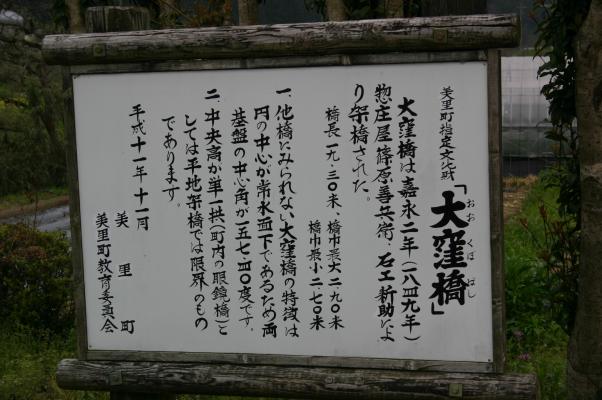 美里町指定文化財
「大窪橋」
おおくぼばし
大窪橋は嘉永二年(一八四九年)
惣庄屋篠原善兵衛、石工新助によ
り架橋された。
橋長一九・三〇米、橋巾最大二・九〇米
橋巾最小二・七〇米
一、他橋にみられない大窪橋の特徴は
円の中心が常水面下であるため両
基盤の中心角が一五七・四〇度です。
二、中央高が単一拱(町内の眼鏡橋)と
しては平地架橋では限界のもの
であります。
平成十一年十一月
美里町
美里町教育委員会